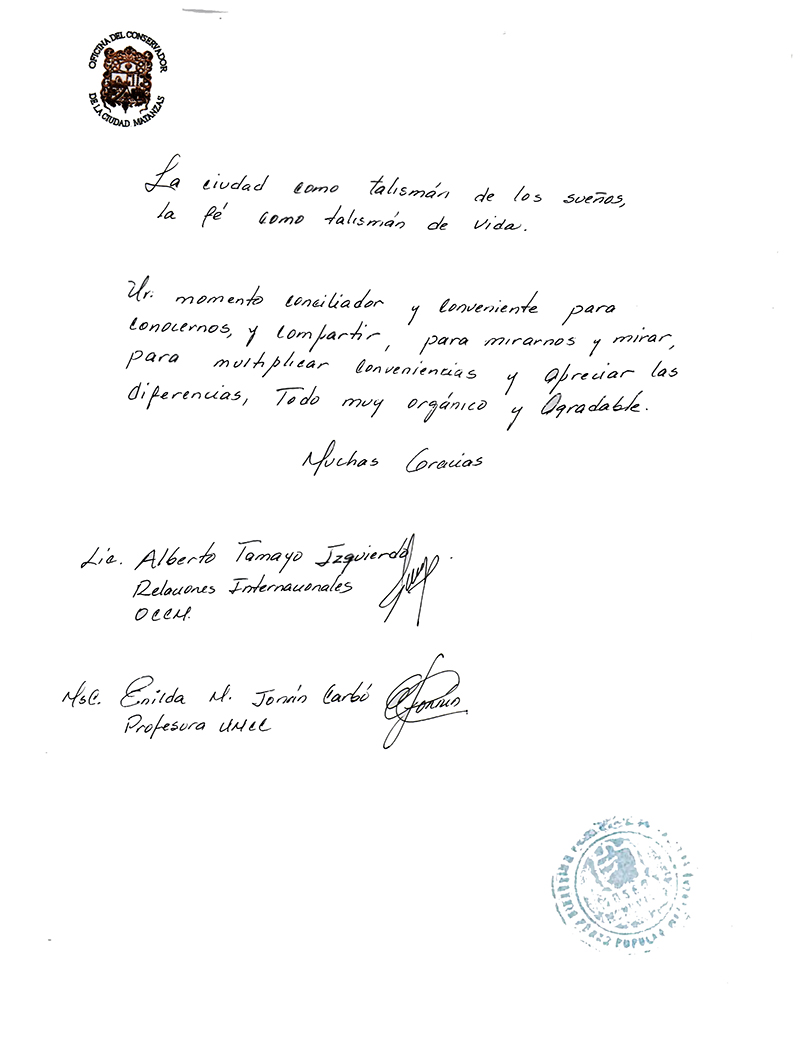 OFICINA DEL CONSERVADOR
DE LA CIUDAD MATANZAS
La ciudad como talismán de los sueños,
la fé como talismán de vida.
Un momento conciliador y conveniente para
conocernos, y compartir, para mirarnos y mirar,
para multiplicar conveniencias y apreciar las
diferencias, Todo muy orgánico y Agradable.
Muchas Gracias
Lic. Alberto Tamayo Izquierdo
Relaciones Internacionales
OCCM.
MsC. Enilda M. Jorrín Carbó
Profesora UMCC
PODER POPULAR